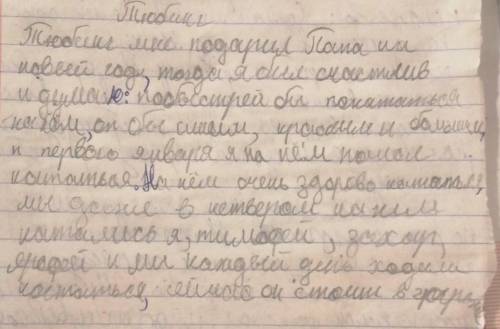 Тюбинг
Тюбинг мне подарил Папа на
новый год, тогда я был счастлив
и думаю: поскорей бы покататься
на нём, он был синим, красным и большим,
и первого января я на нём пошол
кататься. На нём очень здорово кататься,
мы даже в четвером на ним
катались я, тимофей, захар,
ерофей и ми каждый день ходили
кататься, сейчас он стоит в